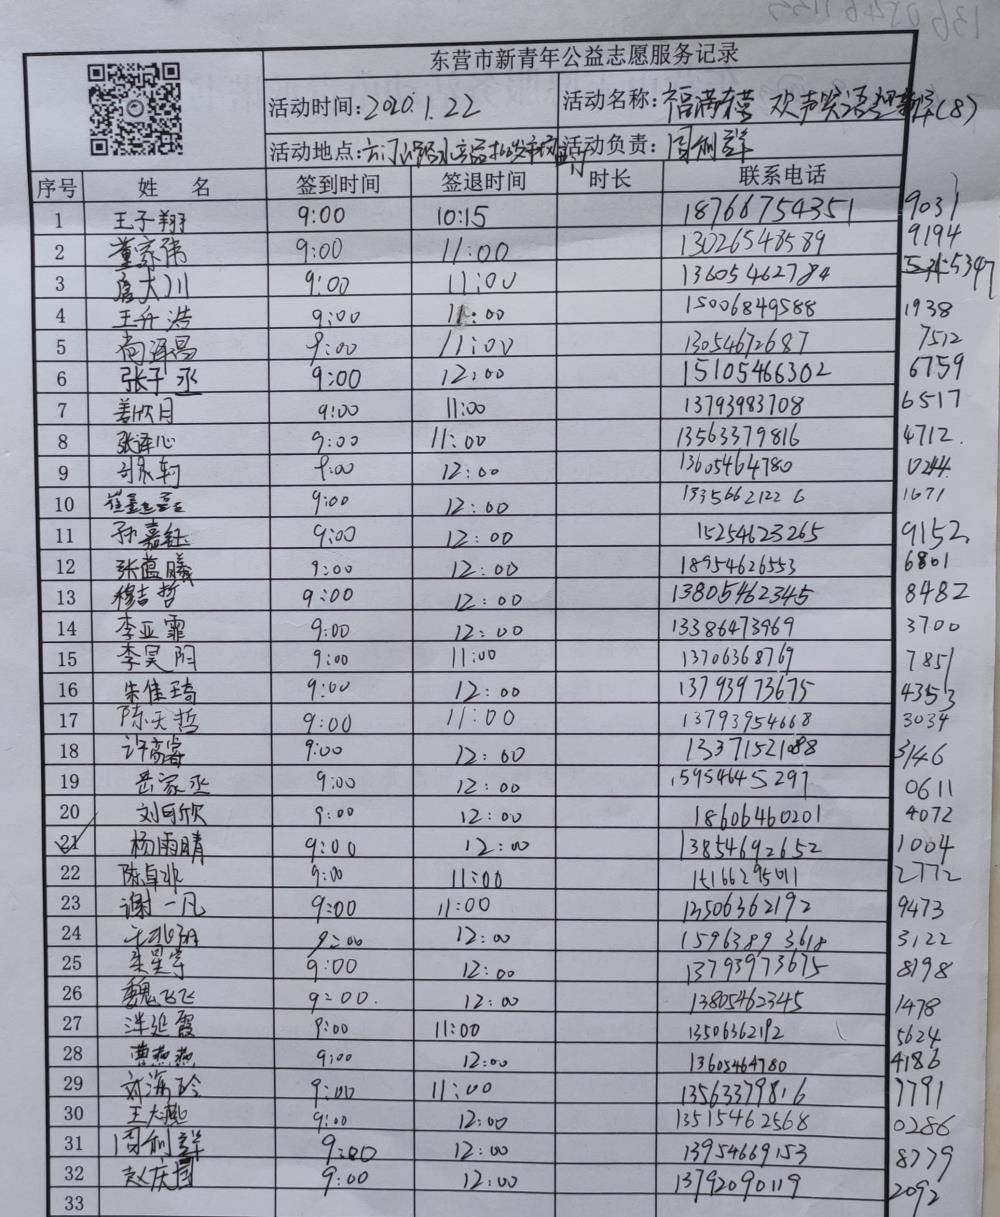 东营市新青年公益志愿服务记录
活动时间:2020.1.22 活动名称:福满东营 欢声笑语迎新年(8)
活动地点: 活动负责:周利群
序号 姓名 签到时间 签退时间 时长 联系电话
1 王子翔 9:00 10:15 18766754351 9031
2 董家伟 9:00 11:00 13026548589 9194
3 唐大川 9:00 11:00 13605462784 5347
4 王升浩 9:00 11:00 15006849588 1938
5 尚泽昌 9:00 11:00 13054672687 7512
6 张子丞 9:00 12:00 15105466302 6759
7 姜欣月 9:00 11:00 13793983708 6517
8 张泽心 9:00 11:00 13563379816 4712.
9 9:00 12:00 13605464780 0244
10 9:00 12:00 18356621226 1671
11 孙嘉钰 9:00 12:00 15254623265 9152
12 张蕴曦 9:00 12:00 18954626553 6801
13 穆吉哲 9:00 12:00 13805462345 8482
14 李亚霏 9:00 12:00 13386473969 3700
15 李昊阳 9:00 11:00 13706368769 7851
16 朱佳琦 9:00 12:00 13793973675 4353
17 陈天哲 9:00 11:00 13793954668 3034
18 许高睿 9:00 12:00 13371521088 3146
19 岳家丞 9:00 12:00 15954645297 0611
20 刘可欣 9:00 12:00 18606460201 4072
21 杨雨晴 9:00 12:00 13854692652 1004
22 陈卓非 9:00 11:00 15166295011 2772
23 谢一凡 9:00 11:00 13506362192 9473
24 9:00 12:00 15963893618 3122
25 朱星宇 9:00 12:00 13793973675 8198
26 魏飞飞 9:00. 12:00 13805462345 1478
27 泮延霞 9:00 11:00 13506362192 5624
28 曹燕燕 9:00 12:00 13605464780 4186
29 刘海玲 9:00 11:00 13563379816 7791
30 王大燕 9:00 12:00 13515462568 0286
31 周利群 9:00 12:00 13954669153 8779
32 赵庆国 9:00 12:00 13792090119 2092
33